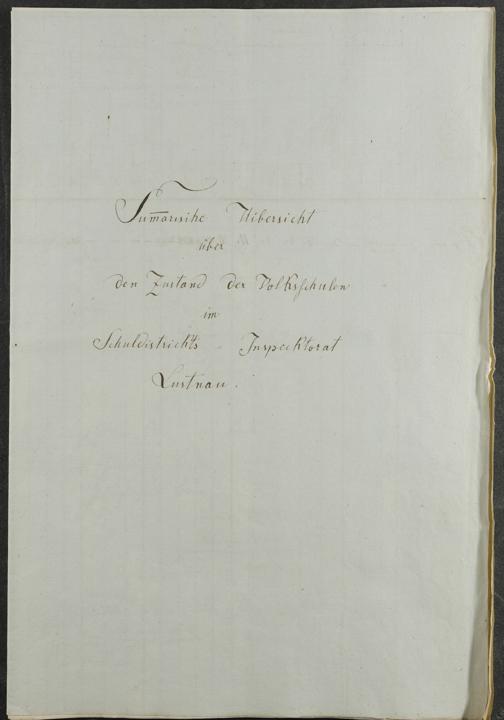 Sum̅arische Uibersicht
über
den Zustand der Volksschulen
im
Schuldistrickts Inspecktorat
Lustnau.